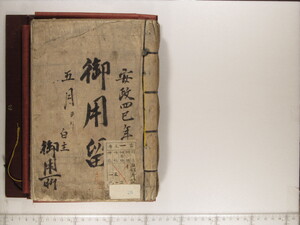 安政四巳年
御用留
五月
白主
御用所